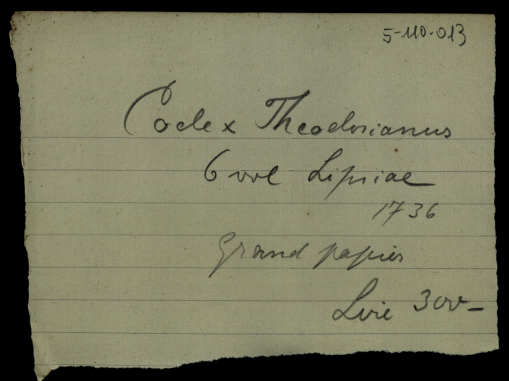 5-110-013
Codex Theodosianus
6 vol Lipsiae
1736
Grand papier
Lire 300-